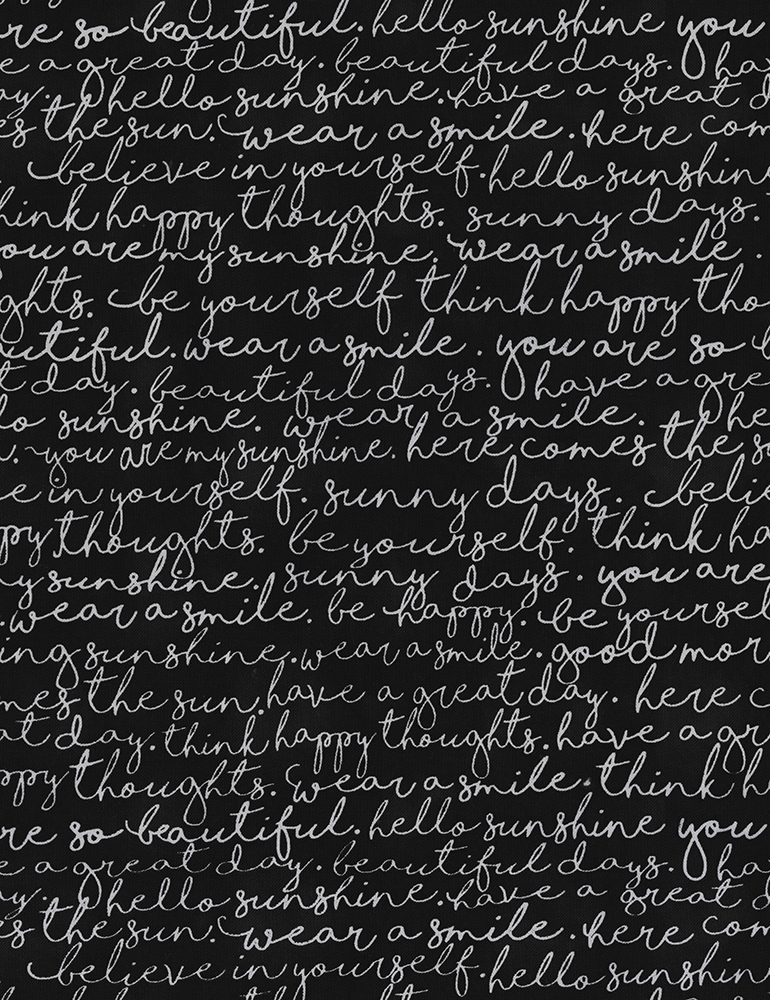 re so beautiful. hello sunshine you
e a great day. beautiful days. hav
ay. hello sunshine. have a great d
es the sun. wear a smile. here com
believe in yourself. hello sunshin
hink happy thoughts. sunny days.
ou are my sunshine. wear a smile.
ghts. be yourself think happy tho
utiful. wear a smile. you are so b
t day. beautiful days. have a grea
lo sunshine. wear a smile. he
you are my sunshine. here comes the su
e in yourself. sunny days. belie
py thoughts. be yourself. think ha
y sunshine. sunny days. you are
. wear a smile. be happy. be yoursel
ing sunshine. wear a smile. good mor
mes the sun. have a great day. here c
at day. think happy thoughts. have a gr
ppy thoughts. wear a smile. think h
re so beautiful. hello sunshine you
e a great day. beautiful days. ha
ay. hello sunshine. have a great d
s the sun. wear a smile. here com
believe in yourself. hello sunshin